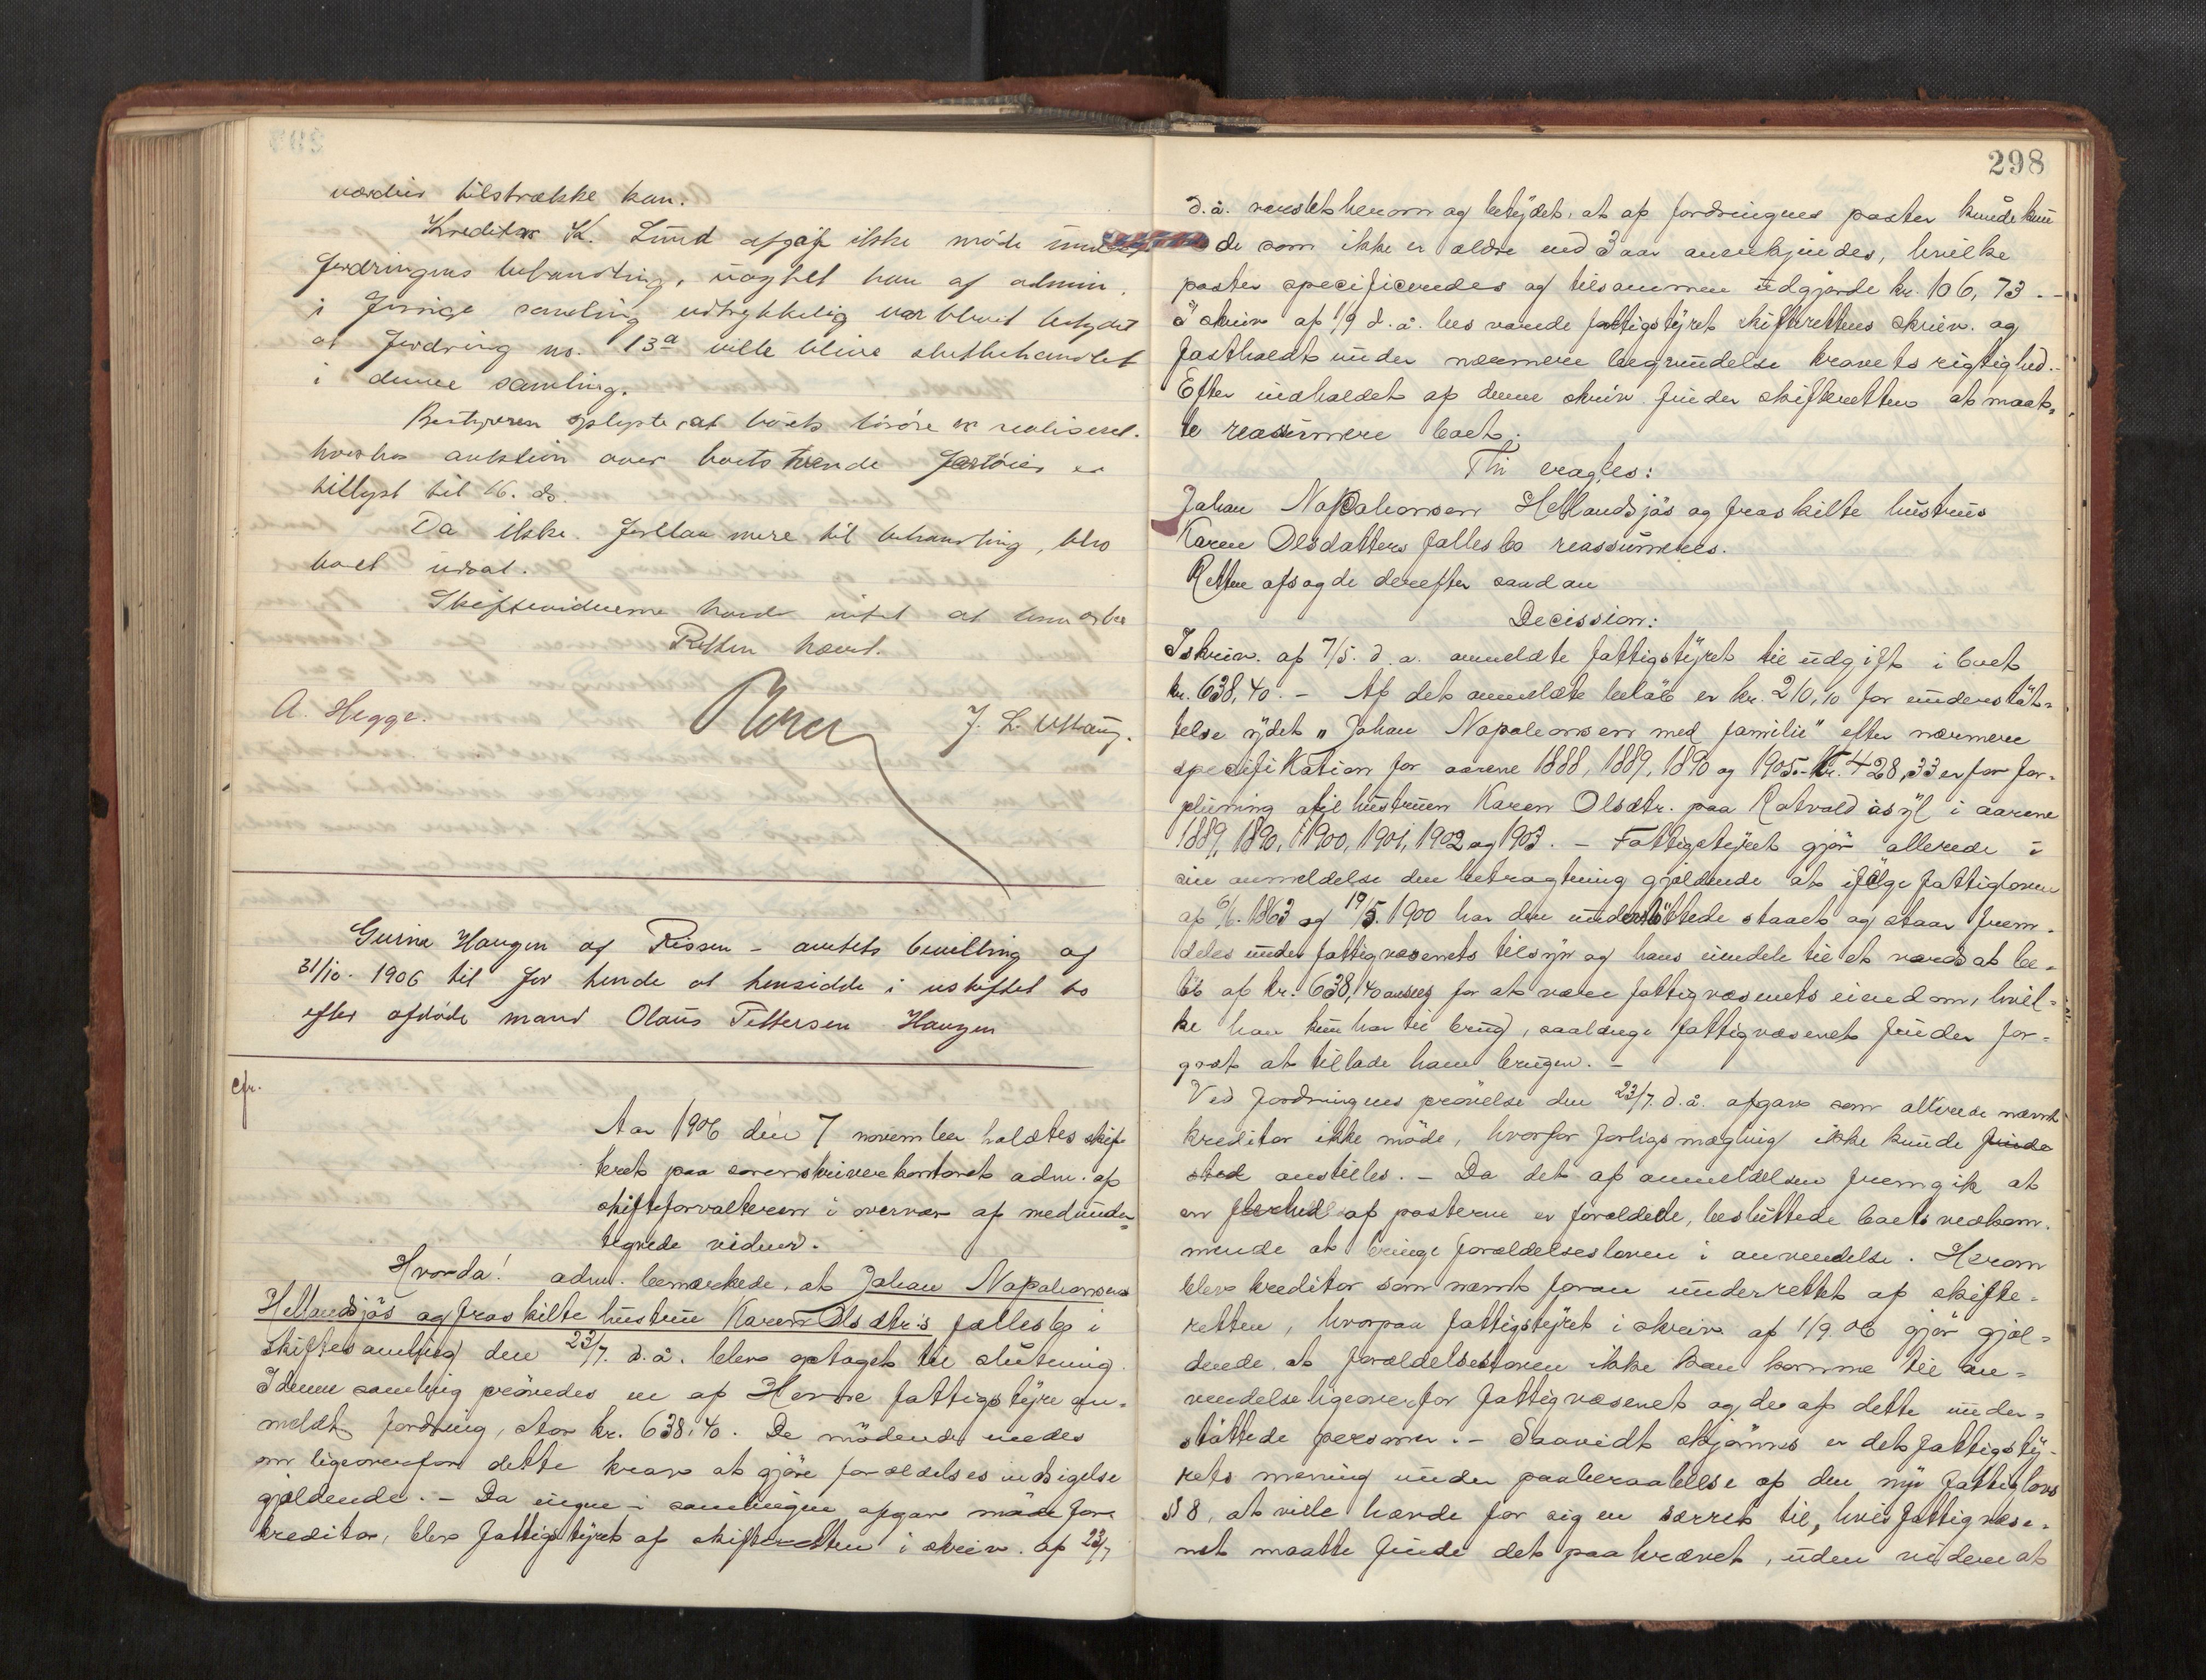 værdier tilstrække kan.
Kreditor K. Lund afgav ikke møde under
fordringens behandling, uagtet han af admin.
i forrige samling udtrykkelig var blevet betydet
at fordring no. 13a ville blive sluttbehandlet
i denne samling.
Bestyreren oplyste, at boets løsøre er realiseret.
hvorhos auktion over boets tvende fartøier er
tillyst til 16. ds.
Da ikke forllaa mere til behandling, blev
boet udsat.
Skiftevidnerne havde intet at bemærke
Retten hævet.
A. Hegge.
J. L. Uttaug.
Gurina Haugen af Rissen – amtets bevilling af
31/10. 1906 til for hende at hensidde i uskiftet bo
efter afdøde mand Olaus Pettersen Haugen
cfr.
Aar 1906 den 7 november holdtes skif-
teret paa sorenskriverkontoret adm. af
skifteforvalteren i overvær af medunder-
tegnede vidner.
Hvorda! adm. bemærkede, at Johan Napoleonsens
Hellandsjøs og fraskilte hustru Karen Olsdtr.s fællesbo i
skiftesamling den 23/7. d.å. blev optaget til slutning.
I denne samling prøvedes en af Hevne fattigstyre an-
meldt fordring, stor kr. 638,40. De mødende enedes
om ligeoverfor dette krav at gjøre forældelsesindsigelse
gjældende. – Da ingen i samlingen afgav møde for
kreditor, blev fattigstyret af skifteretten i skriv. af 23/7
298
d.å. varslet herom og betydet, at af fordringens poster kunde kun
de som ikke er ældre end 3 aar anerkjendes, hvilke
poster specificeredes og tilsammen udgjorde kr. 106,73. –
I skriv af 1/9 d.å. besvarede fattigstyret skifterettens skriv. og
fastholdt under nærmere begrundelse kravets rigtighed. –
Efter indholdet af denne skriv. finder skifteretten at maat-
te reassumere boet;
Thi eragtes:
Johan Napoleonsen Hellandsjøs og fraskilte hustrus
Karen Olsdatters fællesbo reassumeres.
Retten afsagde derefter saadan
Decission:
I skriv. af 7/5. d.a. anmeldte fattigstyret til udgift i boet
kr. 638,40. – Af det anmeldte beløb er kr. 210,10 for understøt-
telse ydet "Johan Napoleonsen med familie" efter nærmere
specifikation for aarene 1888, 1889, 1890 og 1905. – Kr. 428,33 er for for-
pleining af hustruen Karen Olsdtr. paa Rotvold asyl i aarene
1889, 1890, 1900, 1901, 1902 og 1903. – Fattigstyret gjør allerede i
sin anmeldelse den betragtning gjældende at ifølge fattigloven
af 6/6. 1863 og 19/5. 1900 har den understøttede staaet og staar frem-
deles under fattigvæsenets tilsyn og hans eiendele til et værd at be-
løb af kr. 638,40 ansees for at være fattigvæsenets eiendom, hvil-
ke han kun har til brug, saalænge fattigvæsenet finder for-
godt at tillade ham brugen. –
Ved fordringens prøvelse den 23/7. d.å. afgav som allerede nævnt
kreditor ikke møde, hvorfor forligsmægling ikke kunde finde
sted anstilles. – Da det af anmeldelsen fremgik at
en flerhed af posterne er forældede, besluttede boets vedkom-
mende at bringe forældelsesloven i anvendelse. Herom
blev kreditor som nævnt foran underrettet af skifte-
retten, hvorpaa fattigstyret i skriv. af 1/9 06 gjør gjæl-
dende, at forældelsesloven ikke kan komme til an-
vendelse ligeoverfor fattigvæsenet og de af dette under-
støttede personer. – Saavidt skjønnes er det fattigsty-
rets mening under paaberaabelse af den nye fattiglovs
§ 8, at ville hævde for sig en særret til, hvis fattigvæse-
net maatte finde det paakrævet, uden videre at